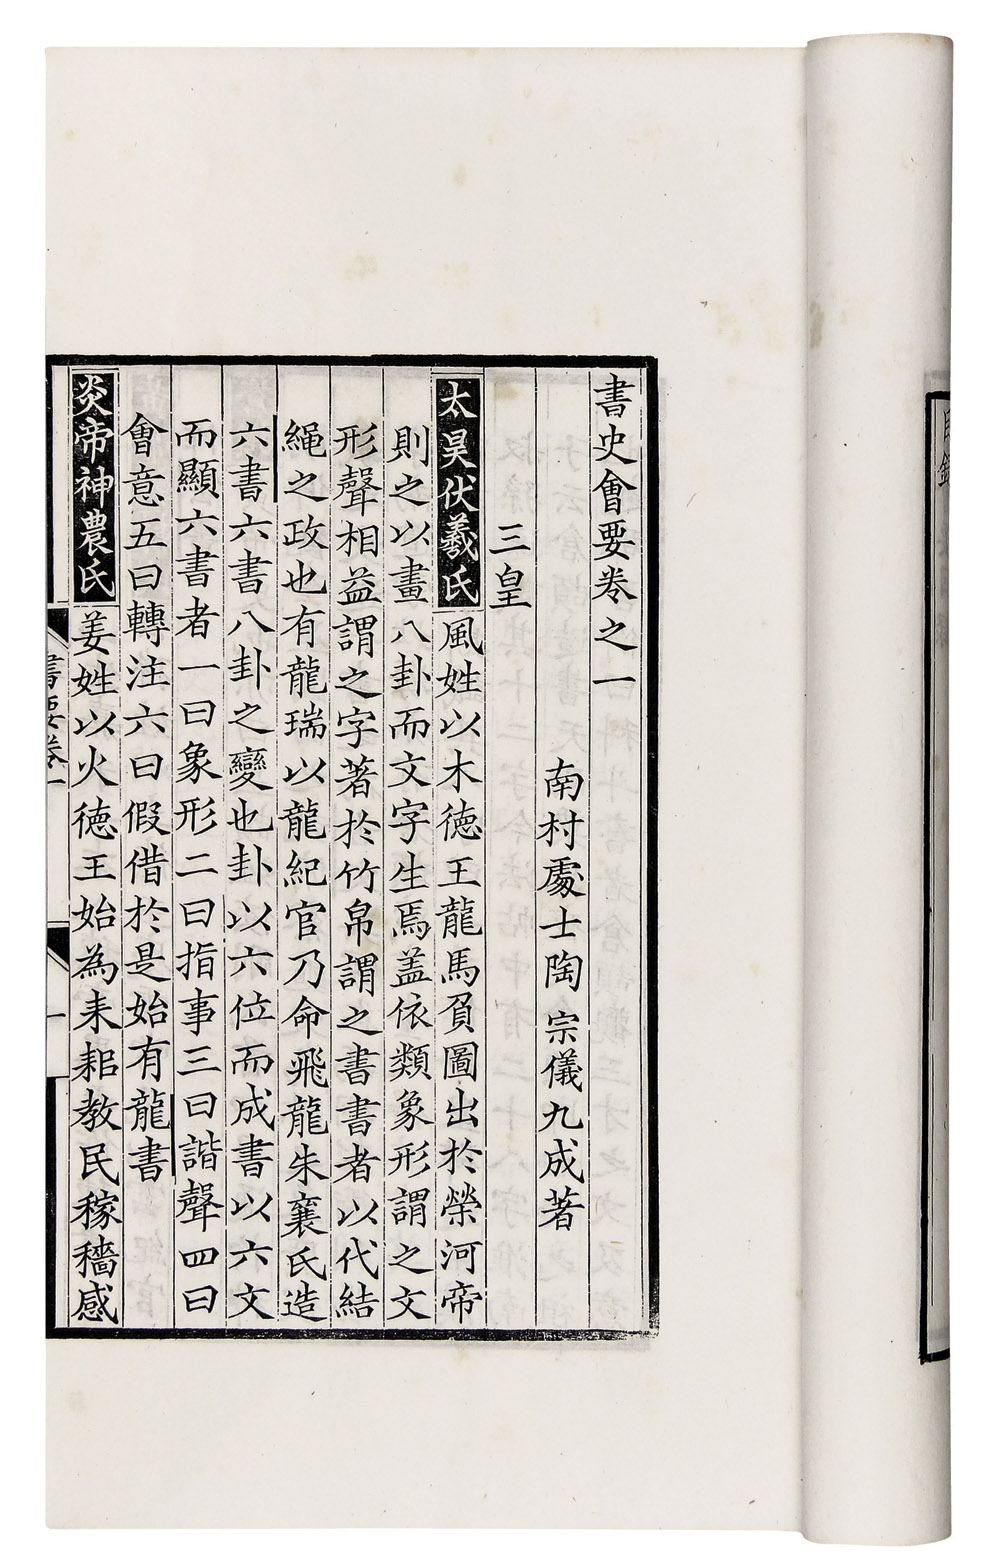 書史會要卷之一
南村處士陶宗儀九成著
三皇
太昊伏羲氏風姓以木德王龍馬負圖出於榮河帝
則之以畫八卦而文字生焉蓋依類象形謂之文
形聲相益謂之字著於竹帛謂之書書者以代結
繩之政也有龍瑞以龍紀官乃命飛龍朱襄氏造
六書六書八卦之變也卦以六位而成書以六文
而顯六書者一曰象形二曰指事三曰諧聲四曰
會意五曰轉注六曰假借於是始有龍書
炎帝神農氏姜姓以火德王始為耒耜教民稼穡感
書要卷一
一